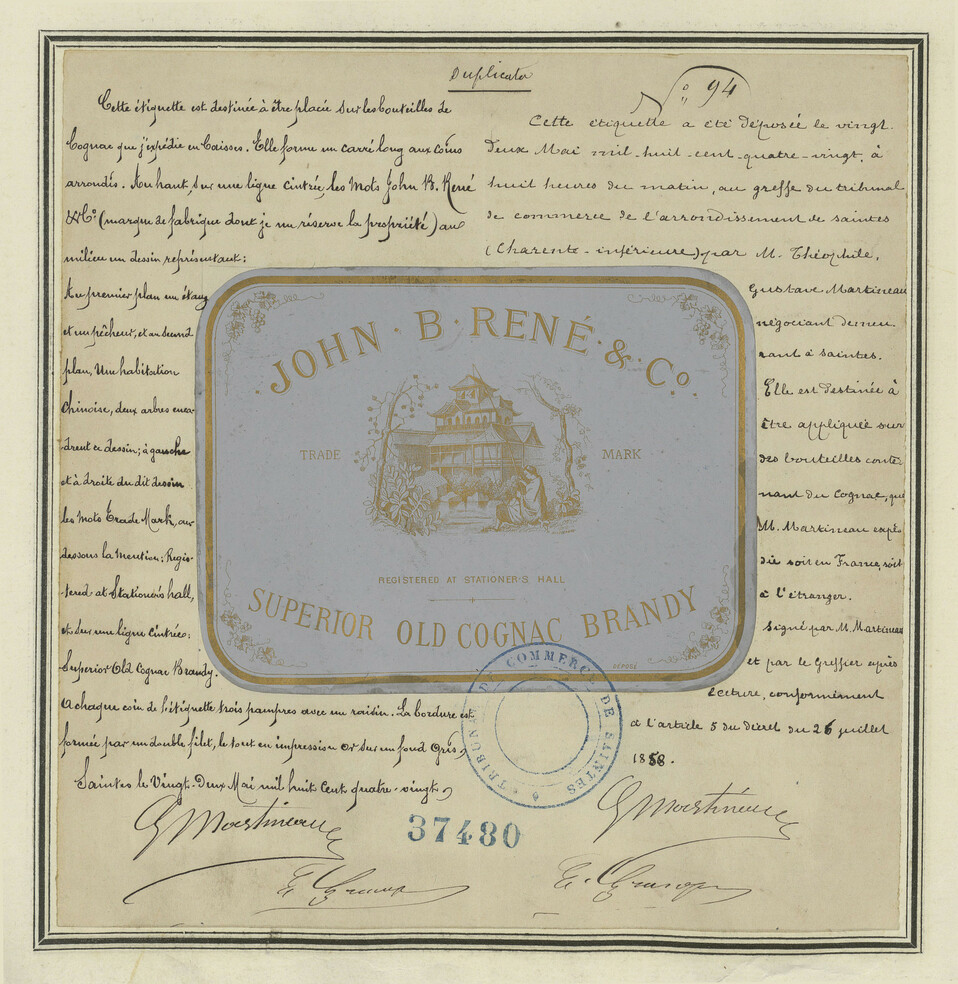 Duplicata
Cette étiquette est destinée à être placée sur les bouteilles de
Cognac que j'expédie en Caisses. Elle forme un carré long aux coins
arrondis. Au haut, sur une ligne cintrée, les Mots John B. René
& Co (marque de fabrique dont je me réserve la propriété) au
milieu un dessin représentant:
Au premier plan un étang
et un pêcheur, et au second
plan, Une habitation
Chinoise, deux arbres enca-
drent ce dessin; à gauche
et à droite du dit dessin
les mots Trade Mark, au
dessous la mention: Regis-
tered at Stationer's hall,
et sur une ligne cintrée:
Superior Old Cognac Brandy.
A chaque coin de l'étiquette trois pampres avec un raisin. La bordure est
formée par un double filet, le tout en impression or sur un fond Gris,
Saintes le Vingt-Deux Mai mil huit Cent quatre-vingt,
G Martineau
No 94
Cette étiquette a été déposée le vingt
deux Mai mil-huit-cent-quatre-vingt, à
huit heures du matin, au greffe du tribunal
de commerce de l'arrondissement de saintes
(Charente-inférieure) par M. Théophile,
Gustave Martineau
négociant demeu
rant à saintes.
Elle est destinée à
être appliquée sur
des bouteilles conte-
nant du Cognac, que
M. Martineau expé
die soit en France, soit
à l'étranger.
Signé par M. Martineau
et par le Greffier après
lecture, conformément
à l'article 5 du décret du 26 juillet
1858.
G Martineau
JOHN · B · RENÉ · & · Co.
TRADE MARK
REGISTERED AT STATIONER'S HALL
SUPERIOR OLD COGNAC BRANDY
DÉPOSÉ
TRIBUNAL DE COMMERCE DE SAINTES
37480